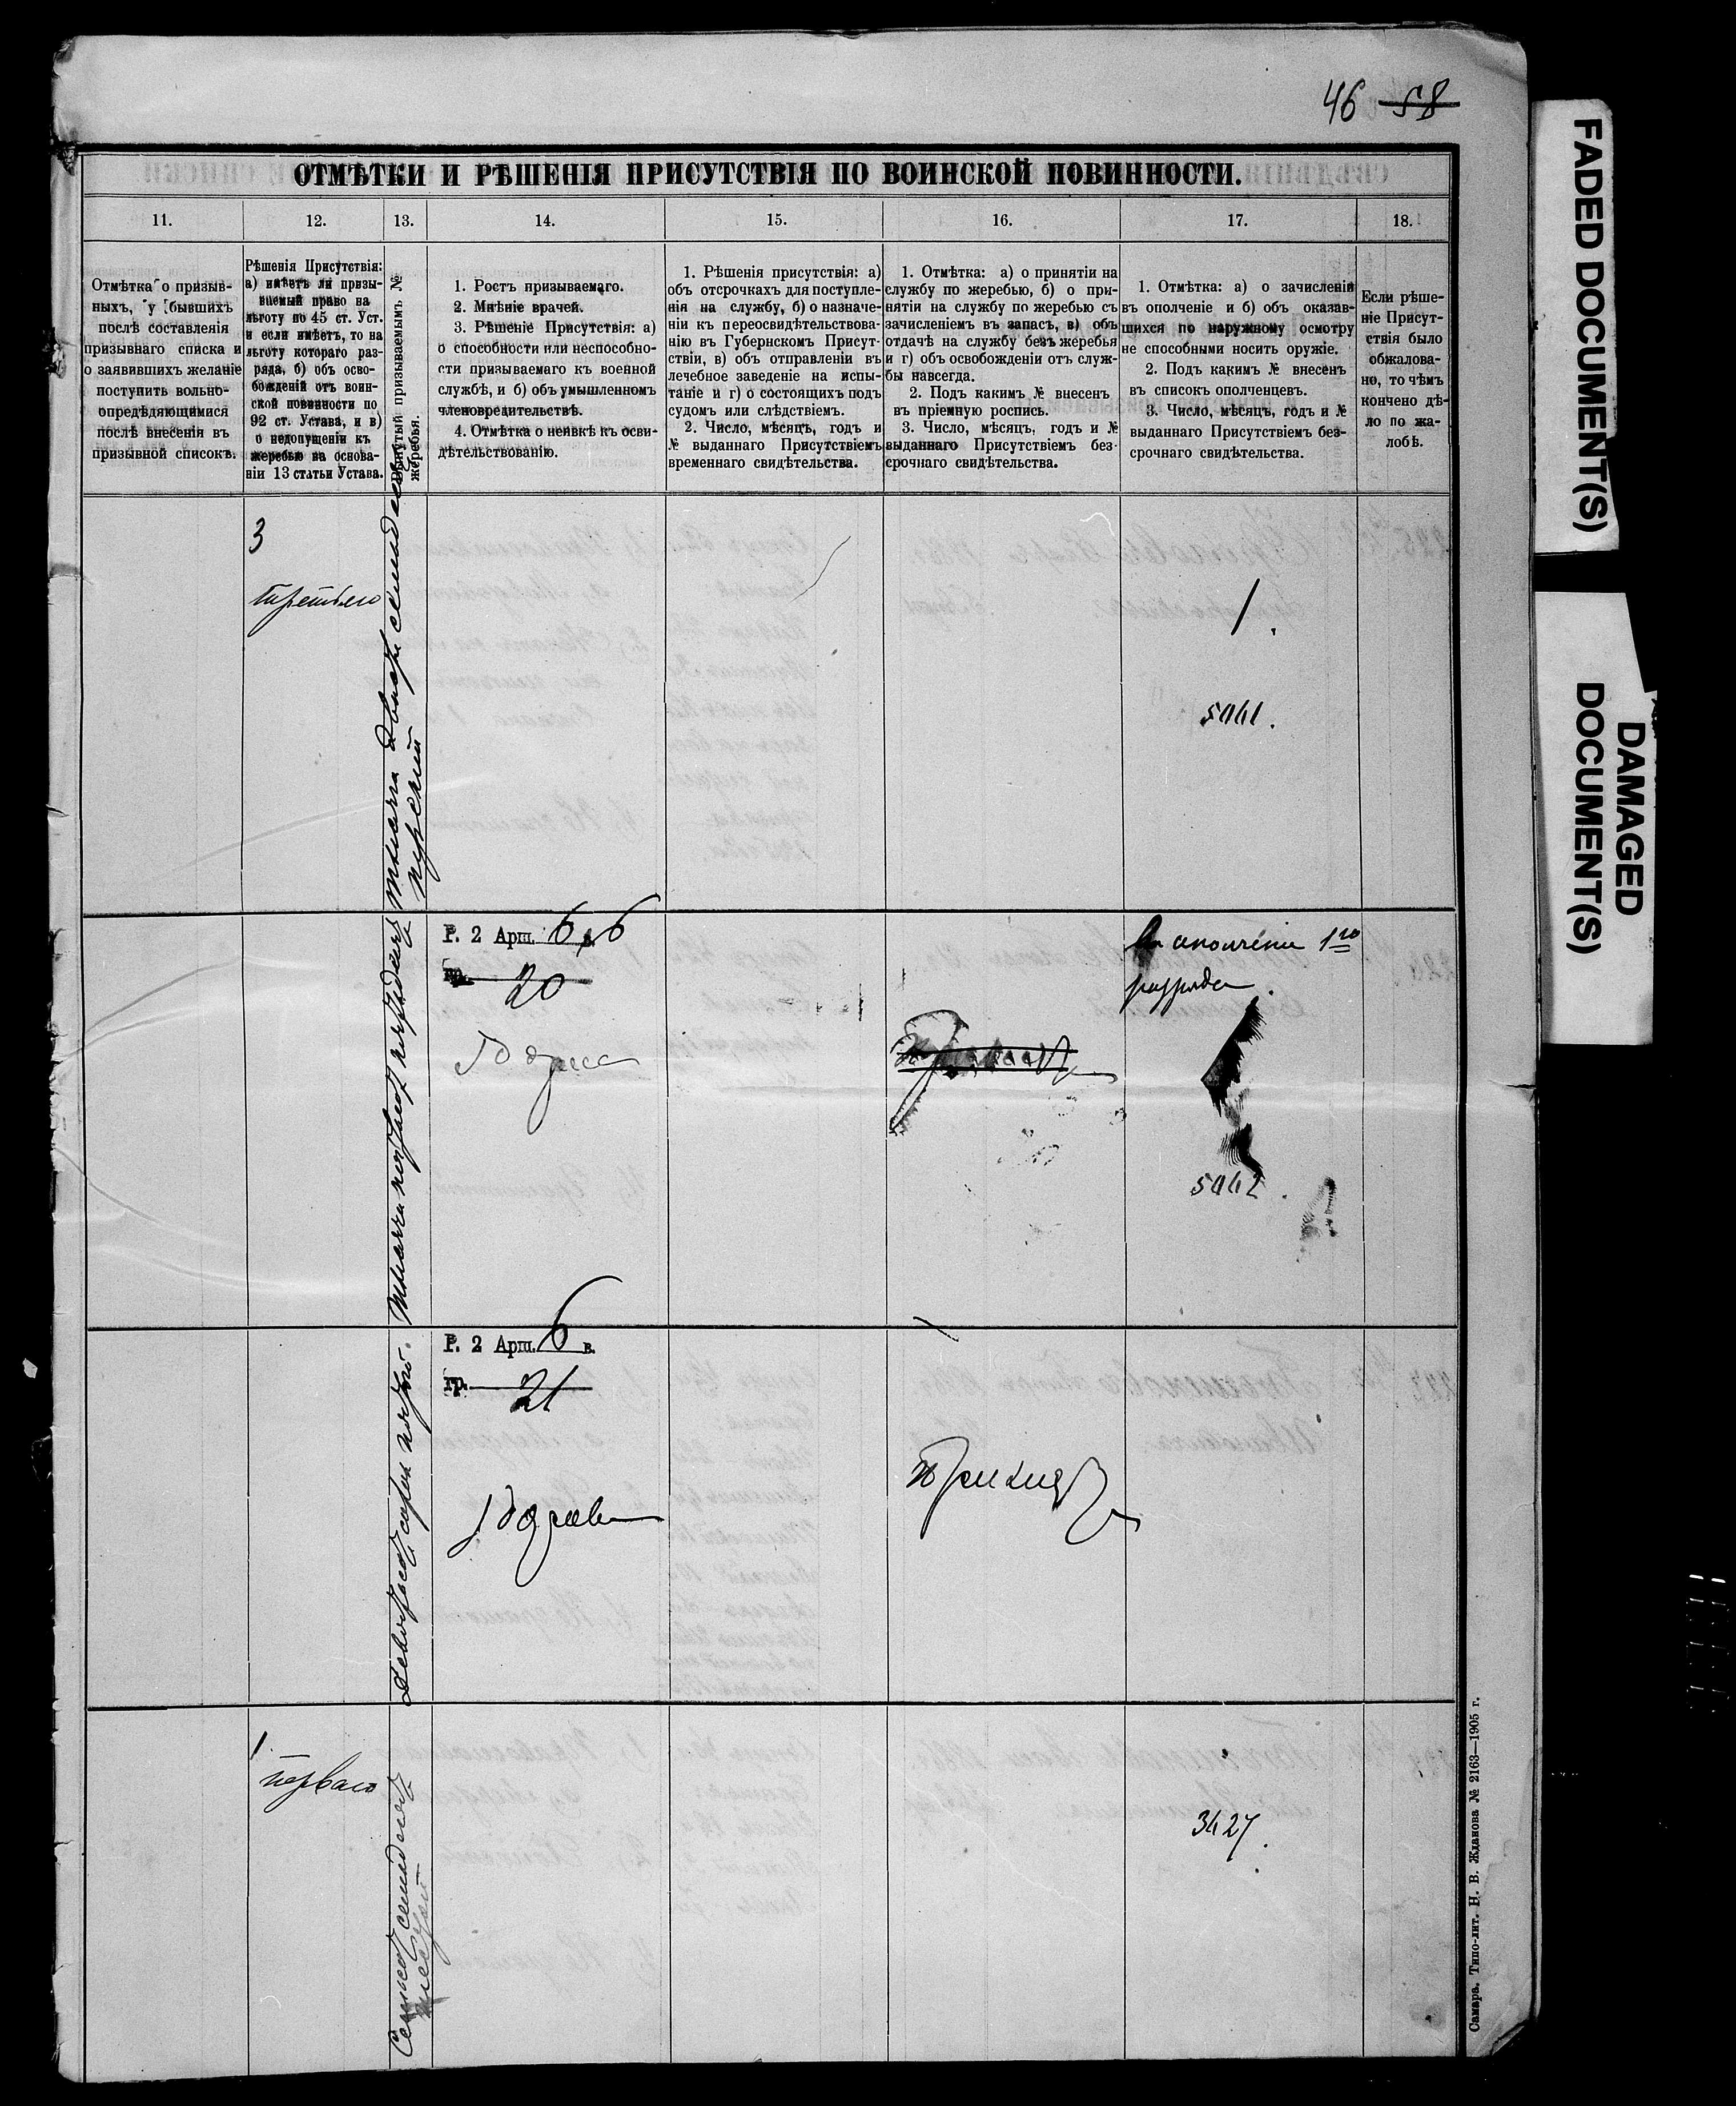 46 58
ОТМѢТКИ И РѢШЕНІЯ ПРИСУТСТВІЯ ПО ВОИНСКОЙ ПОВИННОСТИ.
11. 12. 13. 14. 15. 16. 17. 18.
Отмѣтка о призыв-
ныхъ, у бывшихъ
послѣ составленія
призывнаго списка и
о заявившихъ желаніе
поступить вольно-
опредѣляющимися
послѣ внесенія въ
призывной списокъ.
Рѣшенія Присутствія:
а) имѣетъ ли призы-
ваемый право на
льготу по 45 ст. Уст.
и если имѣетъ, то на
льготу котораго раз-
ряда, б) объ осво-
божденій отъ воин-
ской повинности по
92 ст. Устава, и в)
о недопущеніи къ
жеребью на основа-
ніи 13 статьи Устава.
Вынутый призываемымъ №
жеребья.
1. Ростъ призываемаго.
2. Мнѣніе врачей.
3. Рѣшеніе Присутствія: а)
о способности или неспособно-
сти призываемаго къ военной
службѣ, и б) объ умышленномъ
членовредительствѣ.
4. Отмѣтка о неявкѣ къ осви-
дѣтельствованію.
1. Рѣшенія присутствія: а)
объ отсрочкахъ для поступле-
нія на службу, б) о назначе-
ніи къ переосвидѣтельствова-
нію въ Губернскомъ Присут-
ствіи, в) объ отправленіи въ
лечебное заведеніе на испы-
таніе и г) о состоящихъ подъ
судомъ или слѣдствіемъ.
2. Число, мѣсяцъ, годъ и
№ выданнаго Присутствіемъ
временнаго свидѣтельства.
1. Отмѣтка: а) о принятіи на
службу по жеребью, б) о при-
нятіи на службу по жеребью съ
зачисленіемъ въ запасъ, в) объ
отдачѣ на службу безъ жеребья
и г) объ освобожденіи отъ служ-
бы навсегда.
2. Подъ какимъ № внесенъ
въ пріемную роспись.
3. Число, мѣсяцъ, годъ и №
выданнаго Присутствіемъ без-
срочнаго свидѣтельства.
1. Отмѣтка: а) о зачисленіи
въ ополченіе и б) объ оказав-
шихся по наружному осмотру
не способными носить оружіе.
2. Подъ какимъ № внесенъ
въ списокъ ополченцевъ.
3. Число, мѣсяцъ, годъ и №
выданнаго Присутствіемъ без-
срочнаго свидѣтельства.
Если рѣше-
ніе Присут-
ствія было
обжалова-
но, то чѣмъ
кончено дѣ-
ло по жа-
лобѣ.
3
третьяго
1.
5041.
Р. 2 Арш. 6 в. 6
гр. 20
Годенъ
Въ ополченіе 1го
разряда.
5042.
Р. 2 Арш. 6 в.
гр. 21
Годенъ
Принятъ
1.
перваго
3427.
Самара. Типо-лит. Н. В. Жданова № 2163—1905 г.
FADED DOCUMENT(S)
DAMAGED
DOCUMENT(S)